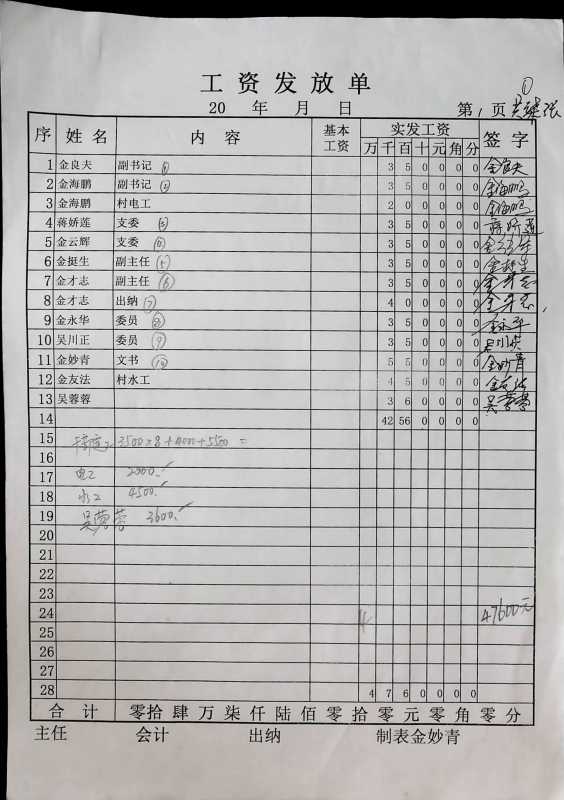 ①
工资发放单
20 年 月 日 第1页 共 张
序 姓名 内容 基本工资 实发工资 签字
万 千 百 十 元 角 分
1 金良夫 副书记 ① 3 5 0 0 0 0 金良夫
2 金海鹏 副书记 ② 3 5 0 0 0 0 金海鹏
3 金海鹏 村电工 2 0 0 0 0 0 金海鹏
4 蒋娇莲 支委 ③ 3 5 0 0 0 0 蒋娇莲
5 金云辉 支委 ④ 3 5 0 0 0 0
6 金挺生 副主任 ⑤ 3 5 0 0 0 0 金挺生
7 金才志 副主任 ⑥ 3 5 0 0 0 0 金才志
8 金才志 出纳 ⑦ 4 0 0 0 0 0 金才志
9 金永华 委员 ⑧ 3 5 0 0 0 0 金永华
10 吴川正 委员 ⑨ 3 5 0 0 0 0
11 金妙青 文书 ⑩ 5 5 0 0 0 0 金妙青
12 金友法 村水工 4 5 0 0 0 0 金友法
13 吴蓉蓉 3 6 0 0 0 0 吴蓉蓉
14 42 56 0 0 0 0
15 3500×8+4000+5500=
16
17 电工 2000.✓
18 水工 4500.✓
19 吴蓉蓉 3600.✓
20
21
22
23
24 4 47600元
25
26
27
28 4 7 6 0 0 0 0
合计 零拾肆万柒仟陆佰零拾零元零角零分
主任 会计 出纳 制表金妙青